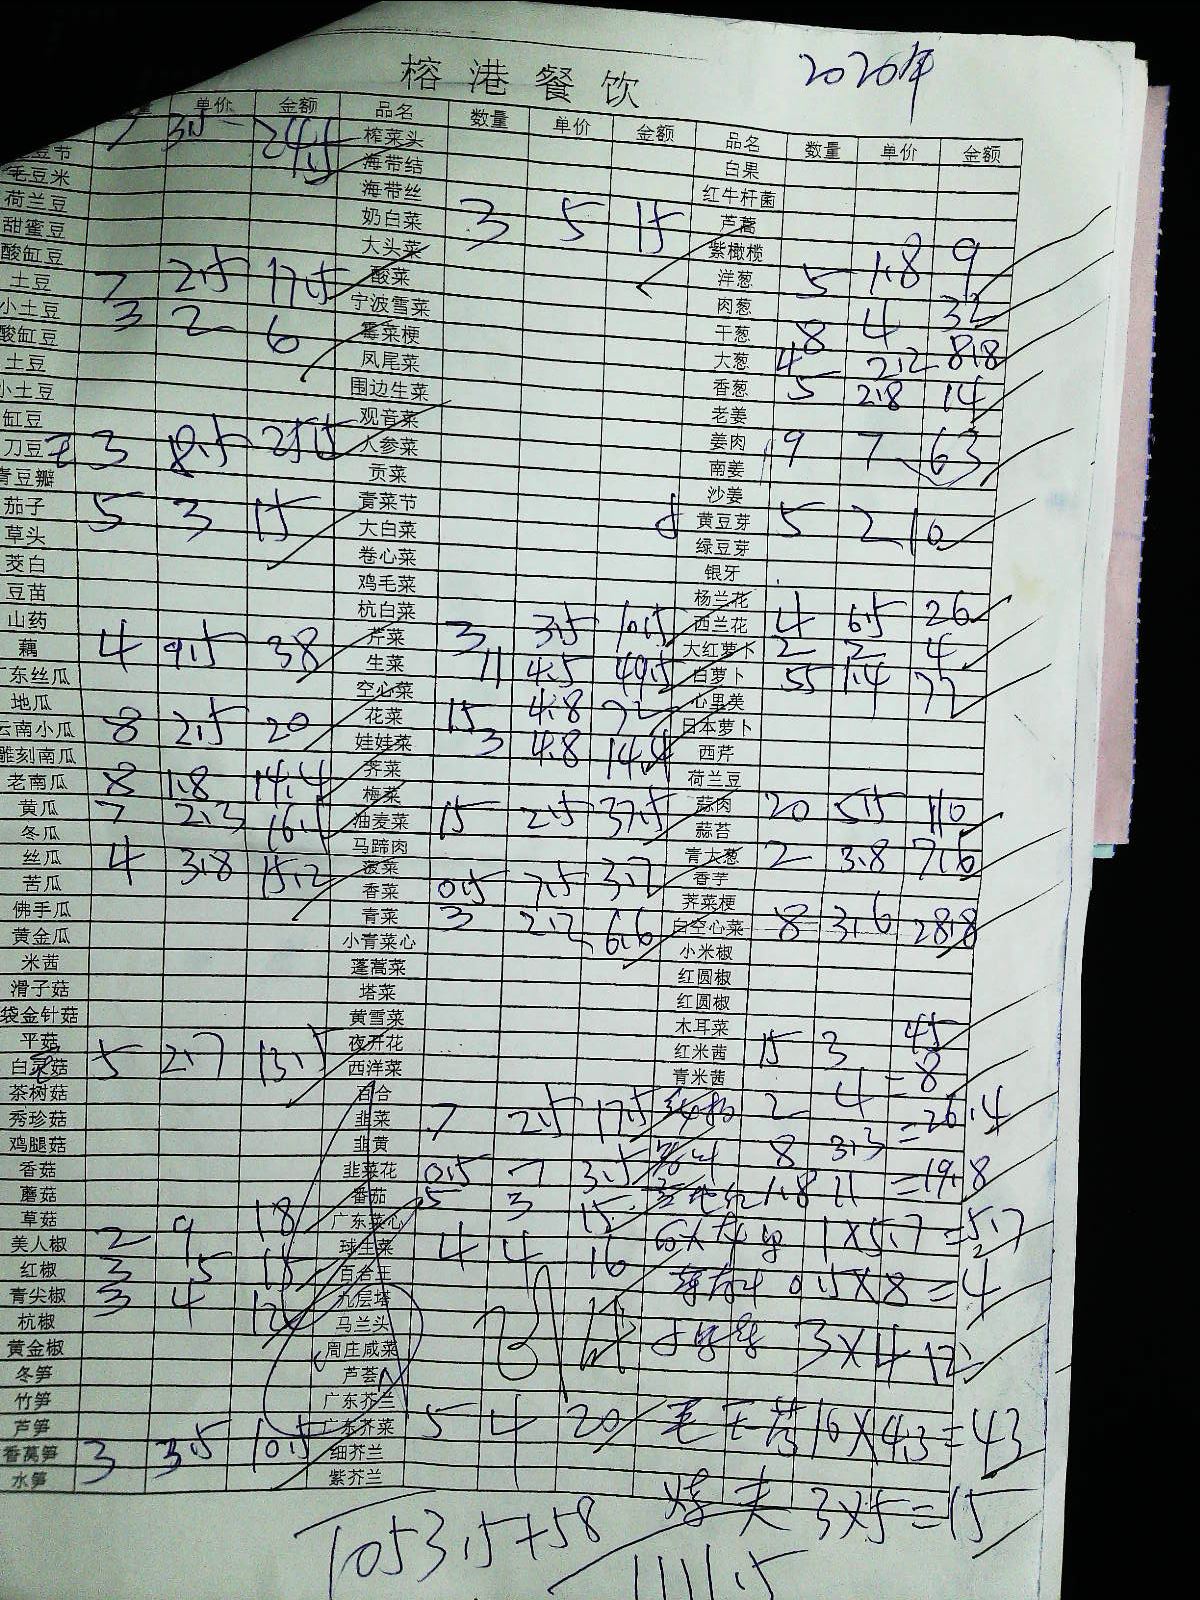 2020年
榕港餐饮
单价 金额 品名 数量 单价 金额 品名 数量 单价 金额
7 3.5 24.5 榨菜头 白果
毛豆米 海带结 红牛杆菌
荷兰豆 海带丝 芦蒿
甜蜜豆 奶白菜 3 5 15 紫橄榄
酸缸豆 大头菜 洋葱 5 1.8 9
土豆 7 2.5 17.5 酸菜 肉葱
小土豆 3 2 6 宁波雪菜 干葱 8 4 32
酸缸豆 霉菜梗 大葱 4 2.2 8.8
土豆 凤尾菜 香葱 5 2.8 14
小土豆 围边生菜 老姜
缸豆 观音菜 姜肉 9 7 63
刀豆 3 8.5 25.5 人参菜 南姜
青豆瓣 贡菜 沙姜
茄子 5 3 15 青菜节 黄豆芽 5 2 10
草头 大白菜 绿豆芽
茭白 卷心菜 银牙
豆苗 鸡毛菜 杨兰花
山药 杭白菜 西兰花 4 6.5 26
藕 4 9.5 38 芹菜 3 3.5 10.5 大红萝卜 2 2 4
广东丝瓜 生菜 11 4.5 49.5 白萝卜 55 1.4 77
地瓜 空心菜 心里美
云南小瓜 8 2.5 20 花菜 15 4.8 72 日本萝卜
雕刻南瓜 娃娃菜 3 4.8 14.4 西芹
老南瓜 8 1.8 14.4 荠菜 荷兰豆
黄瓜 7 2.3 16.1 梅菜 蒜肉 20 5.5 110
冬瓜 油麦菜 15 2.5 37.5 蒜苔
丝瓜 4 3.8 15.2 马蹄肉 青大葱 2 3.8 7.6
苦瓜 菠菜 香芋
佛手瓜 香菜 0.5 7.5 3.7 荠菜梗
黄金瓜 青菜 3 2.2 6.6 白空心菜 8 3.6 28.8
米茜 小青菜心 小米椒
滑子菇 蓬蒿菜 红圆椒
袋金针菇 塔菜 红圆椒
平菇 黄雪菜 木耳菜
白灵菇 5 2.7 13.5 夜开花 红米茜 15 3 45
茶树菇 西洋菜 青米茜
秀珍菇 百合 2 4 = 8
鸡腿菇 韭菜 7 2.5 17.5 8 3.3 = 26.4
香菇 韭黄 1.8 11 = 19.8
蘑菇 韭菜花 0.5 7 3.5
草菇 番茄 5 3 15 1×5.7=5.7
美人椒 2 9 18 广东菜心
红椒 3 5 15 球生菜 4 4 16 0.5×8=4
青尖椒 3 4 12 百合王
杭椒 九层塔 3×4 12
黄金椒 马兰头
冬笋 周庄咸菜
竹笋 芦荟
芦笋 广东芥兰
香莴笋 3 3.5 10.5 广东芥菜 5 4 20 10×4.3=43
水笋 细芥兰
紫芥兰 3×5=15
1053.5+58
1111.5